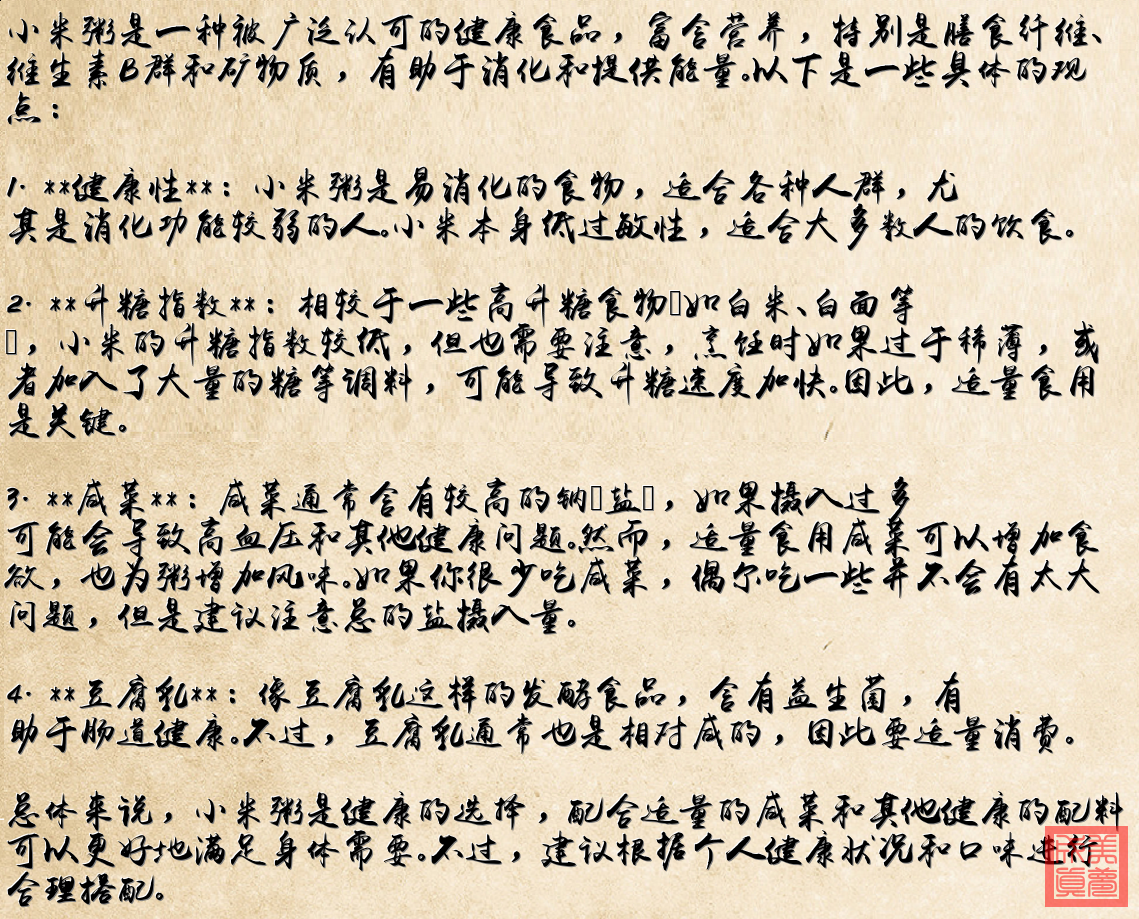 小米粥是一种被广泛认可的健康食品，富含营养，特别是膳食纤维、
维生素B群和矿物质，有助于消化和提供能量。以下是一些具体的观
点：
1. **健康性**：小米粥是易消化的食物，适合各种人群，尤
其是消化功能较弱的人。小米本身低过敏性，适合大多数人的饮食。
2. **升糖指数**：相较于一些高升糖食物□如白米、白面等
□，小米的升糖指数较低，但也需要注意，烹饪时如果过于稀薄，或
者加入了大量的糖等调料，可能导致升糖速度加快。因此，适量食用
是关键。
3. **咸菜**：咸菜通常含有较高的钠□盐□，如果摄入过多
可能会导致高血压和其他健康问题。然而，适量食用咸菜可以增加食
欲，也为粥增加风味。如果你很少吃咸菜，偶尔吃一些并不会有太大
问题，但是建议注意总的盐摄入量。
4. **豆腐乳**：像豆腐乳这样的发酵食品，含有益生菌，有
助于肠道健康。不过，豆腐乳通常也是相对咸的，因此要适量消费。
总体来说，小米粥是健康的选择，配合适量的咸菜和其他健康的配料
可以更好地满足身体需要。不过，建议根据个人健康状况和口味进行
合理搭配。